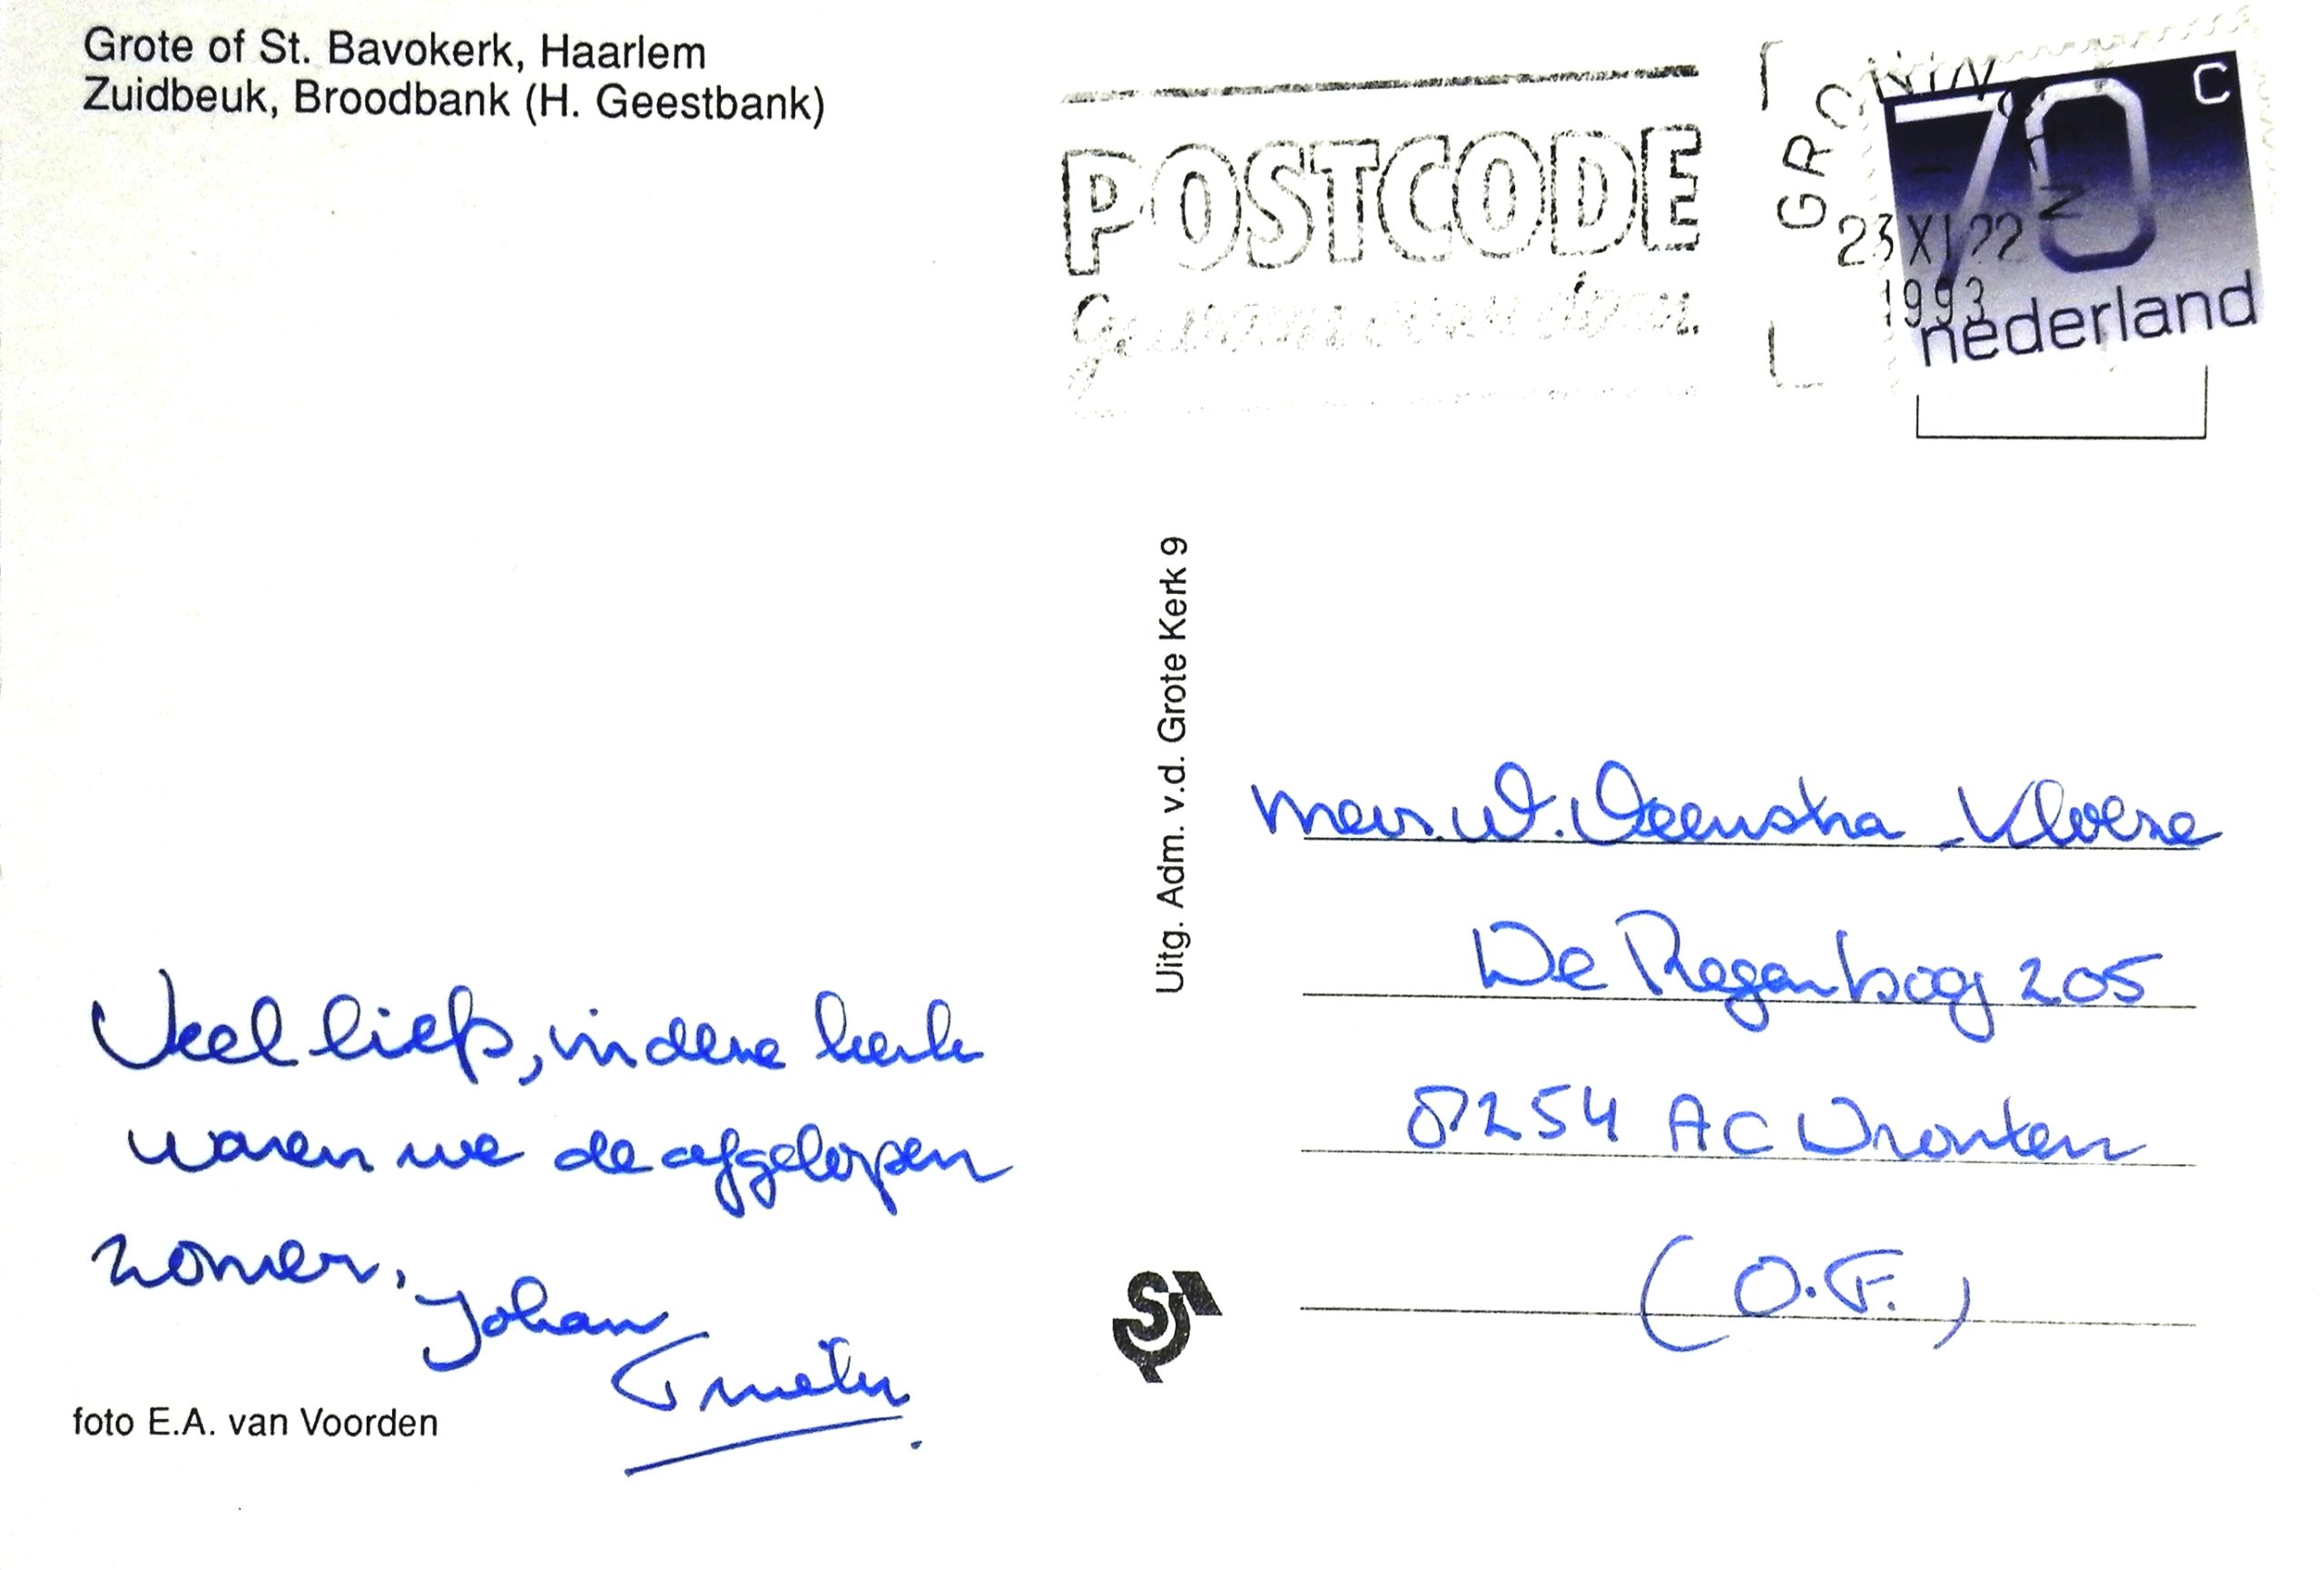 Grote of St. Bavokerk, Haarlem
Zuidbeuk, Broodbank (H. Geestbank)
POSTCODE
GRONINGEN
23 XI 22
1993
70 C
nederland
Uitg. Adm. v.d. Grote Kerk 9
Mevr. W. Veenstra - Kloeze
De Regenboog 205
8254 AC Dronten
(O.F.)
Veel liefs, in deze kerk
waren we de afgelopen
zomer.
Johan
Trieneke
foto E.A. van Voorden